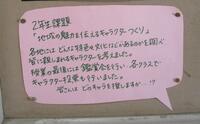 2年生課題
「地域の魅力を伝えるキャラクターづくり」
各地にはどんな特色や文化などがあるのかを調べ
皆に親しまれるキャラクターを考えました。
授業の最後には鑑賞会を行い、各クラスで
キャラクター投票も行いました。
皆さんはどのキャラを推しますか…!?